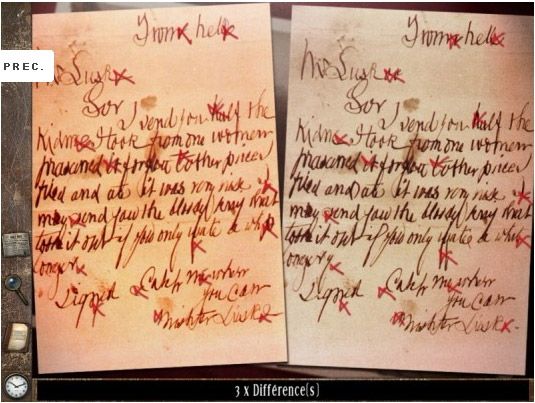 From hell
Mr Lusk
Sor
I send you half the
Kidne I took from one women
prasarved it for you tother piece I
fried and ate it was very nise I
may send you the bloody knif that
took it out if you only wate a whil
longer
signed Catch me when
you can
Mishter Lusk
From hell
Mr Lusk
Sor
I send you half the
Kidne I took from one women
prasarved it for you tother piece I
fried and ate it was very nise I
may send you the bloody knif that
took it out if you only wate a whil
longer
signed Catch me when
you can
Mishter Lusk
PREC.
3 x Différence(s)